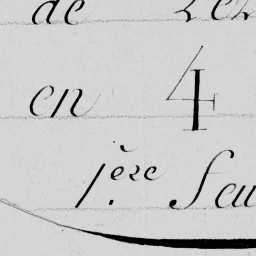 de
en 4
1.ère Feu